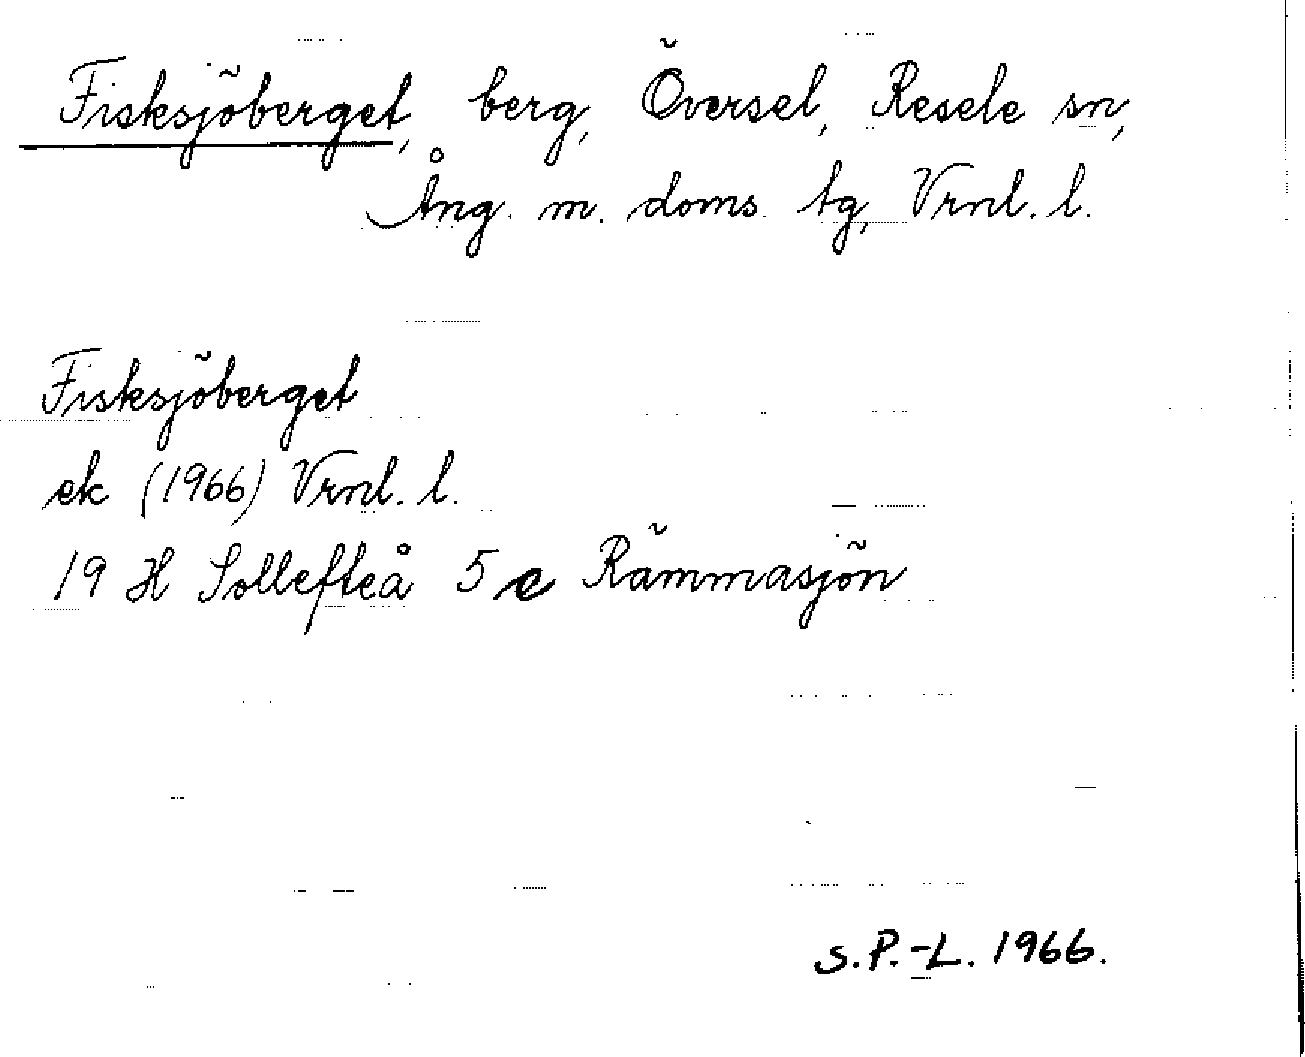 Fisksjöberget, berg, Översel, Resele sn,
Ång. m. doms. tg, Vrnl. l.
Fisksjöberget
ek (1966) Vrnl. l.
19 H Sollefteå 5 c Rämmasjön
S.P.-L. 1966.